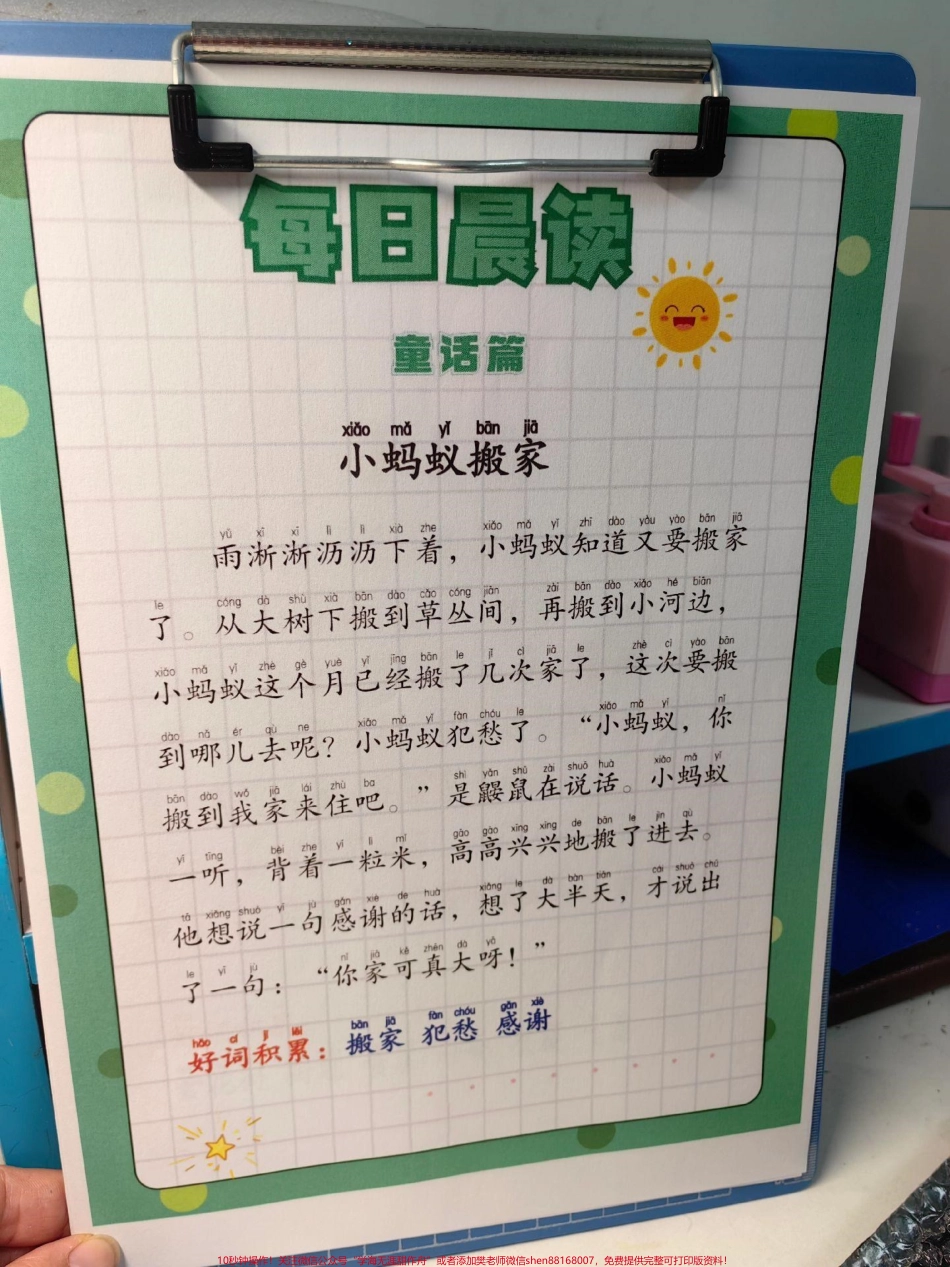 每日晨读
童话篇
xiǎo mǎ yǐ bān jiā
小蚂蚁搬家
yǔ xī xī lì lì xià zhe xiǎo mǎ yǐ zhī dào yòu yào bān jiā
雨淅淅沥沥下着，小蚂蚁知道又要搬家
le cóng dà shù xià bān dào cǎo cóng jiān zài bān dào xiǎo hé biān
了。从大树下搬到草丛间，再搬到小河边，
xiǎo mǎ yǐ zhè gè yuè yǐ jīng bān le jǐ cì jiā le zhè cì yào bān
小蚂蚁这个月已经搬了几次家了，这次要搬
dào nǎ ér qù ne xiǎo mǎ yǐ fàn chóu le xiǎo mǎ yǐ nǐ
到哪儿去呢？小蚂蚁犯愁了。“小蚂蚁，你
bān dào wǒ jiā lái zhù ba shì yǎn shǔ zài shuō huà xiǎo mǎ yǐ
搬到我家来住吧。”是鼹鼠在说话。小蚂蚁
yī tīng bēi zhe yī lì mǐ gāo gāo xìng xìng de bān le jìn qù
一听，背着一粒米，高高兴兴地搬了进去。
tā xiǎng shuō yī jù gǎn xiè de huà xiǎng le dà bàn tiān cái shuō chū
他想说一句感谢的话，想了大半天，才说出
le yī jù nǐ jiā kě zhēn dà yā
了一句：“你家可真大呀！”
hǎo cí jī lěi bān jiā fàn chóu gǎn xiè
好词积累：搬家 犯愁 感谢
10秒钟操作！关注微信公众号 或者添加樊老师微信shen88168007，免费提供完整可打印版资料！